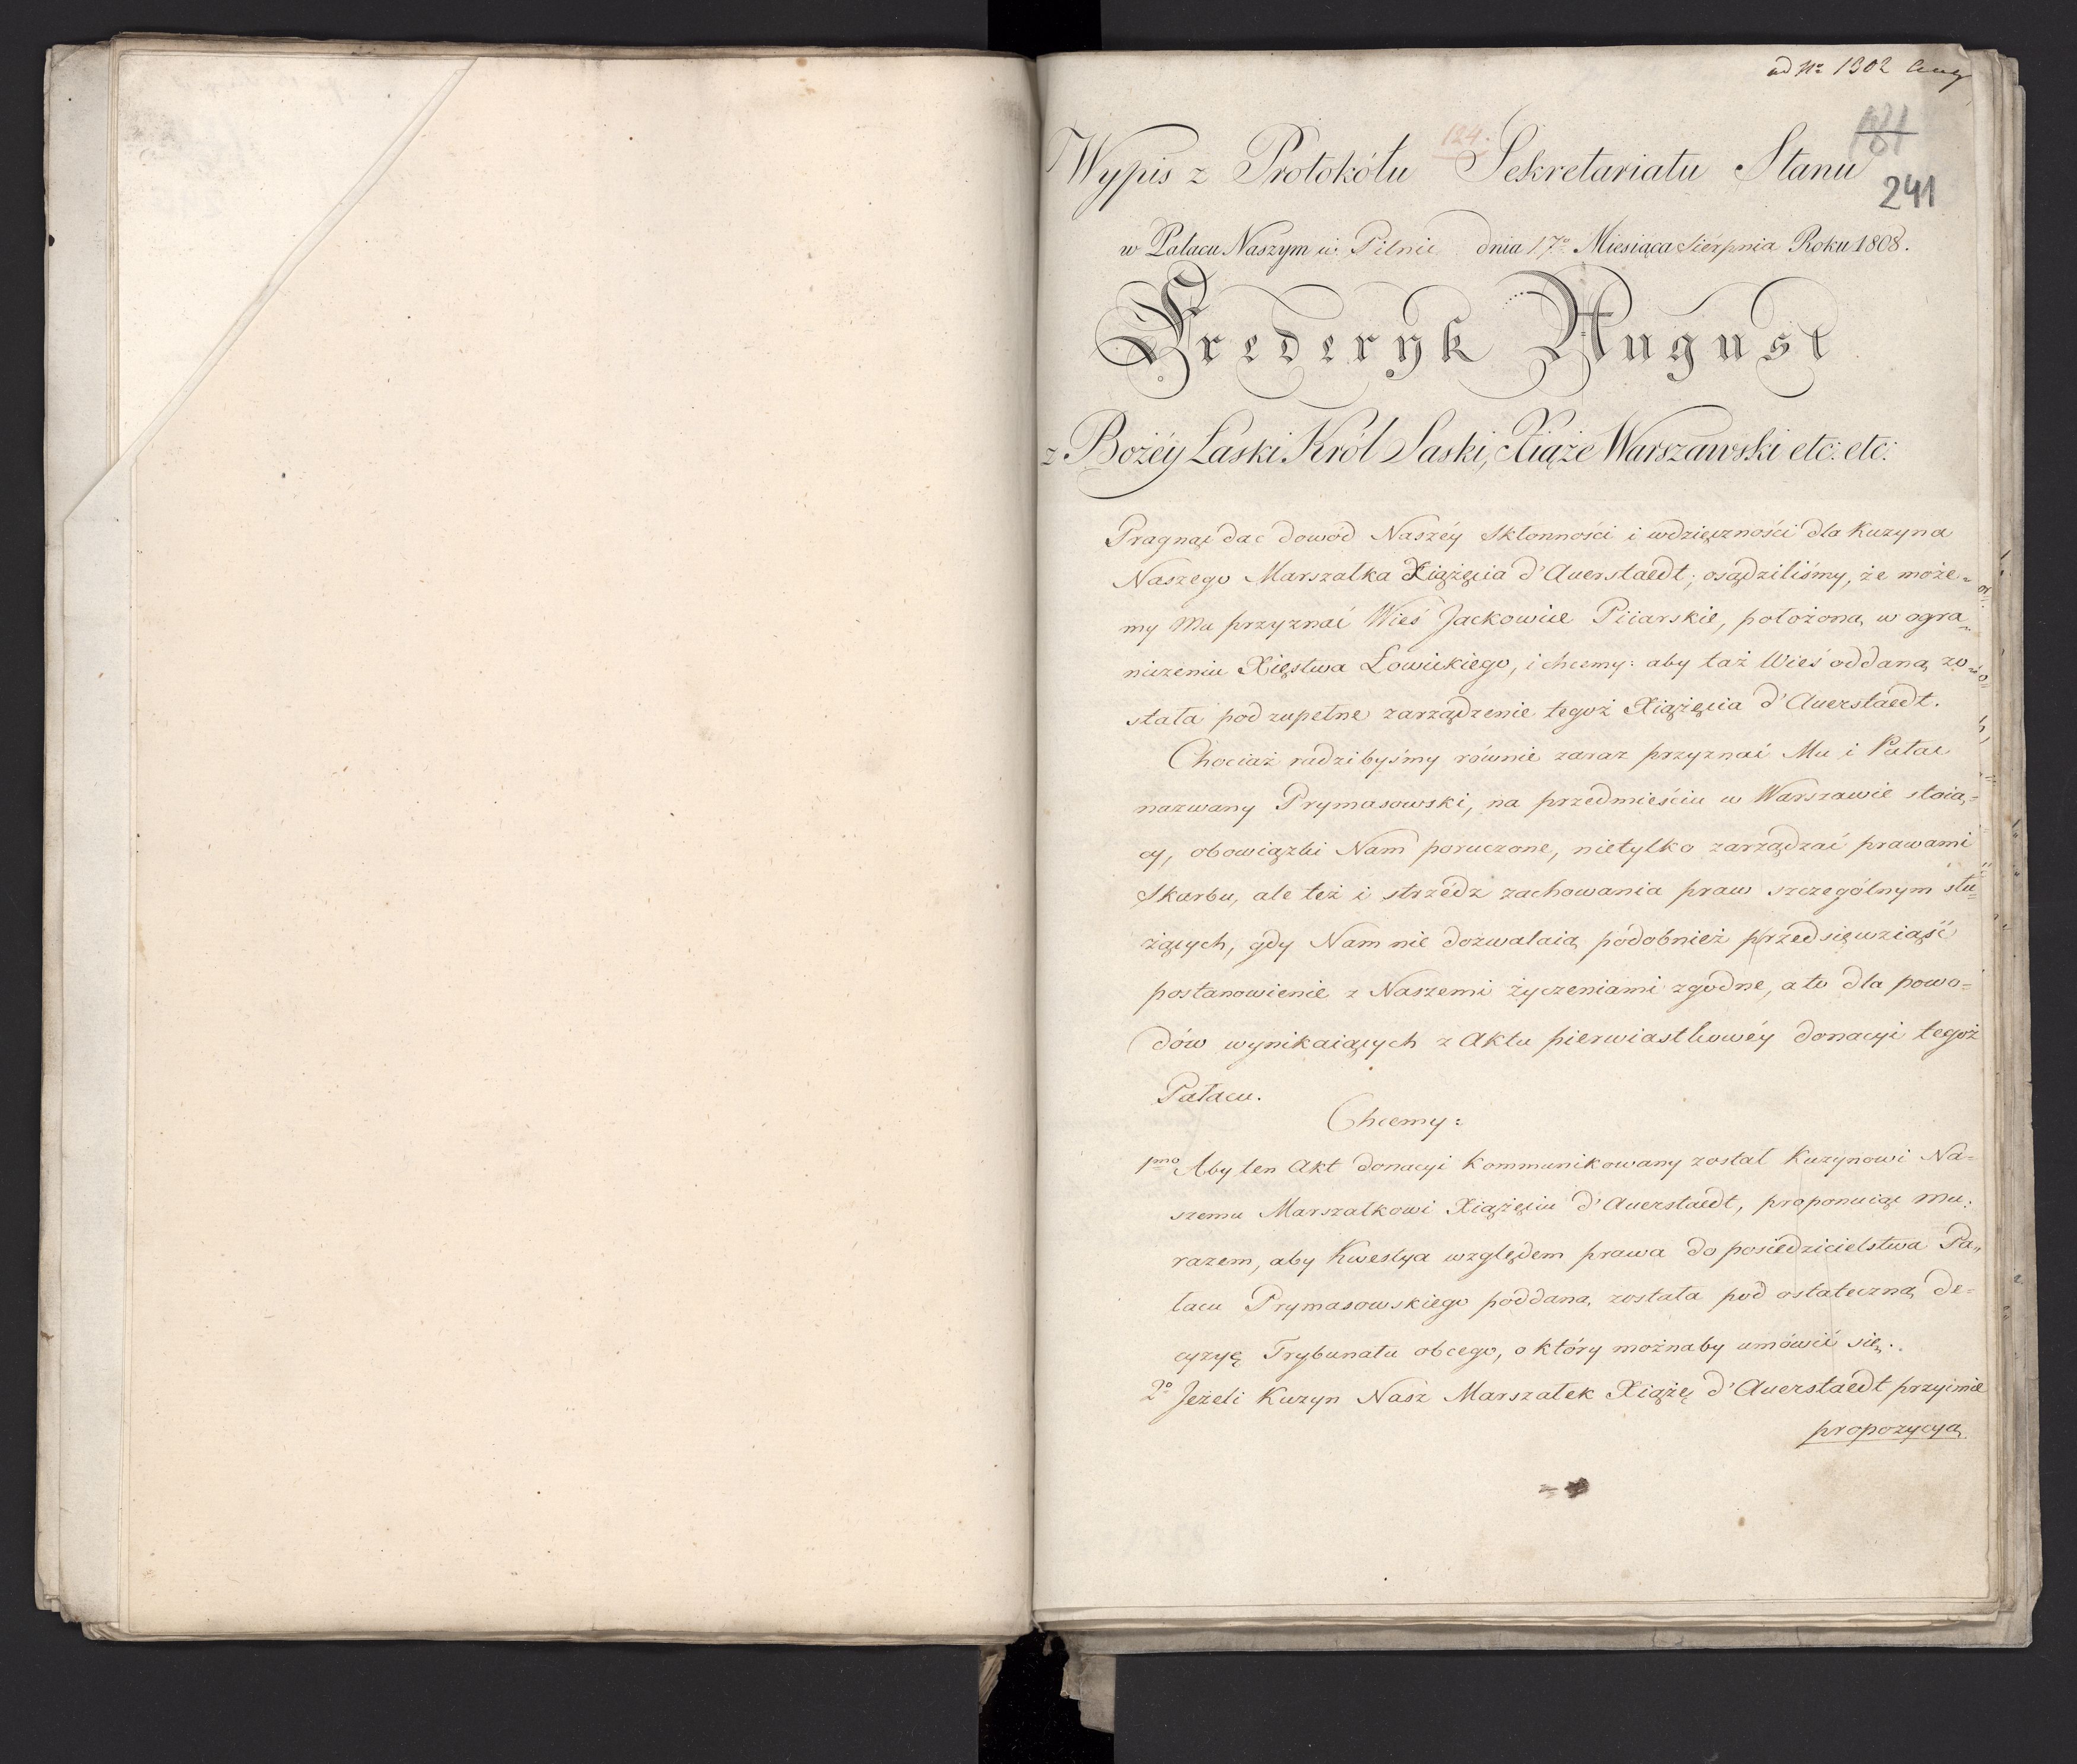 ad No 1302 Aug
181
124.
Wypis z Protokółu Sekretariatu Stanu
241
w Pałacu Naszym w Pilnic dnia 17o Miesiąca Sierpnia Roku 1808.
Frederyk August
z Bożéy Łaski Król Saski, Xiąże Warszawski etc: etc:
Pragnąc dac dowód Naszéy Skłonności i wdzięczności dla Kuzyna
Naszego Marszałka Xiążęcia d'Auerstaedt; osądziliśmy, że może-
my Mu przyznać Wieś Jackowice Piiarskie, położoną w ogra-
niczeniu Xięstwa Łowickiego, i chcemy: aby taż Wieś oddaną zo-
stała pod zupełne zarządzenie tegoż Xiążęcia d'Auerstaedt.
Chociaż radzibyśmy równie zaraz przyznać Mu i Pałac
nazwany Prymasowski, na przedmieściu w Warszawie stoią-
cy, obowiązki Nam poruczone, nietylko zarządzać prawami
Skarbu, ale też i strzédz zachowania praw szczególnym słu-
żących, gdy Nam nie dozwalaią pódobnież przedsięwziąść
postanowienie z Naszemi życzeniami zgodne, a to dla powo-
dów wynikaiących z Aktu pierwiastkowéy donacyi tegoż
Pałacu.
Chcemy:
1mo Aby ten Akt donacyi kommunikowany został Kuzynowi Na-
szemu Marszałkowi Xiążęciu d'Auerstaedt, proponuiąc Mu:
razem, aby Kwestya względem prawa do posiedzicielstwa Pa-
łacu Prymasowskiego poddaną została pod ostateczną de-
cyzyę Trybunału obcego, o który możnaby umówić się.
2o Jeżeli Kuzyn Nasz Marszałek Xiążę d'Auerstaedt przyimie
propozycyą